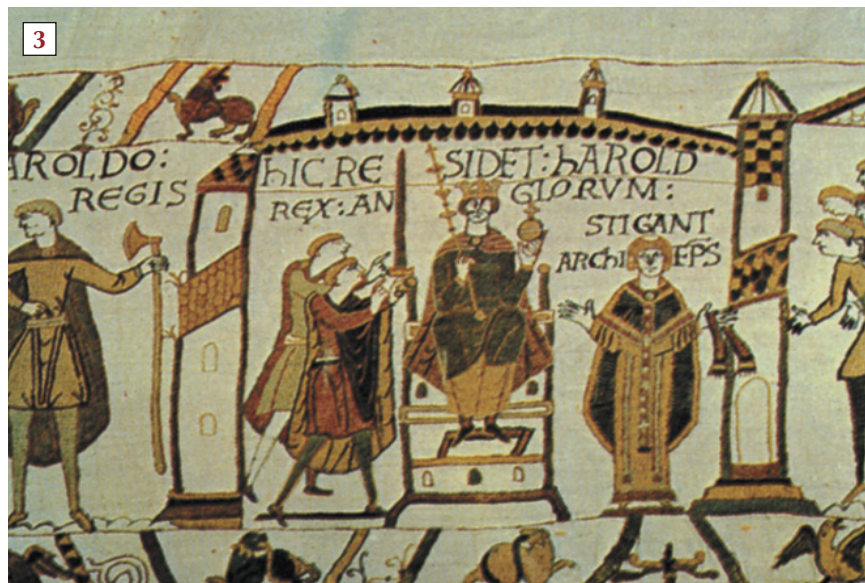 3
AROLDO:
REGIS
hIC RE SIDET: hAROLD
REX: AN GLORVM:
STIGANT
ARChI EPS